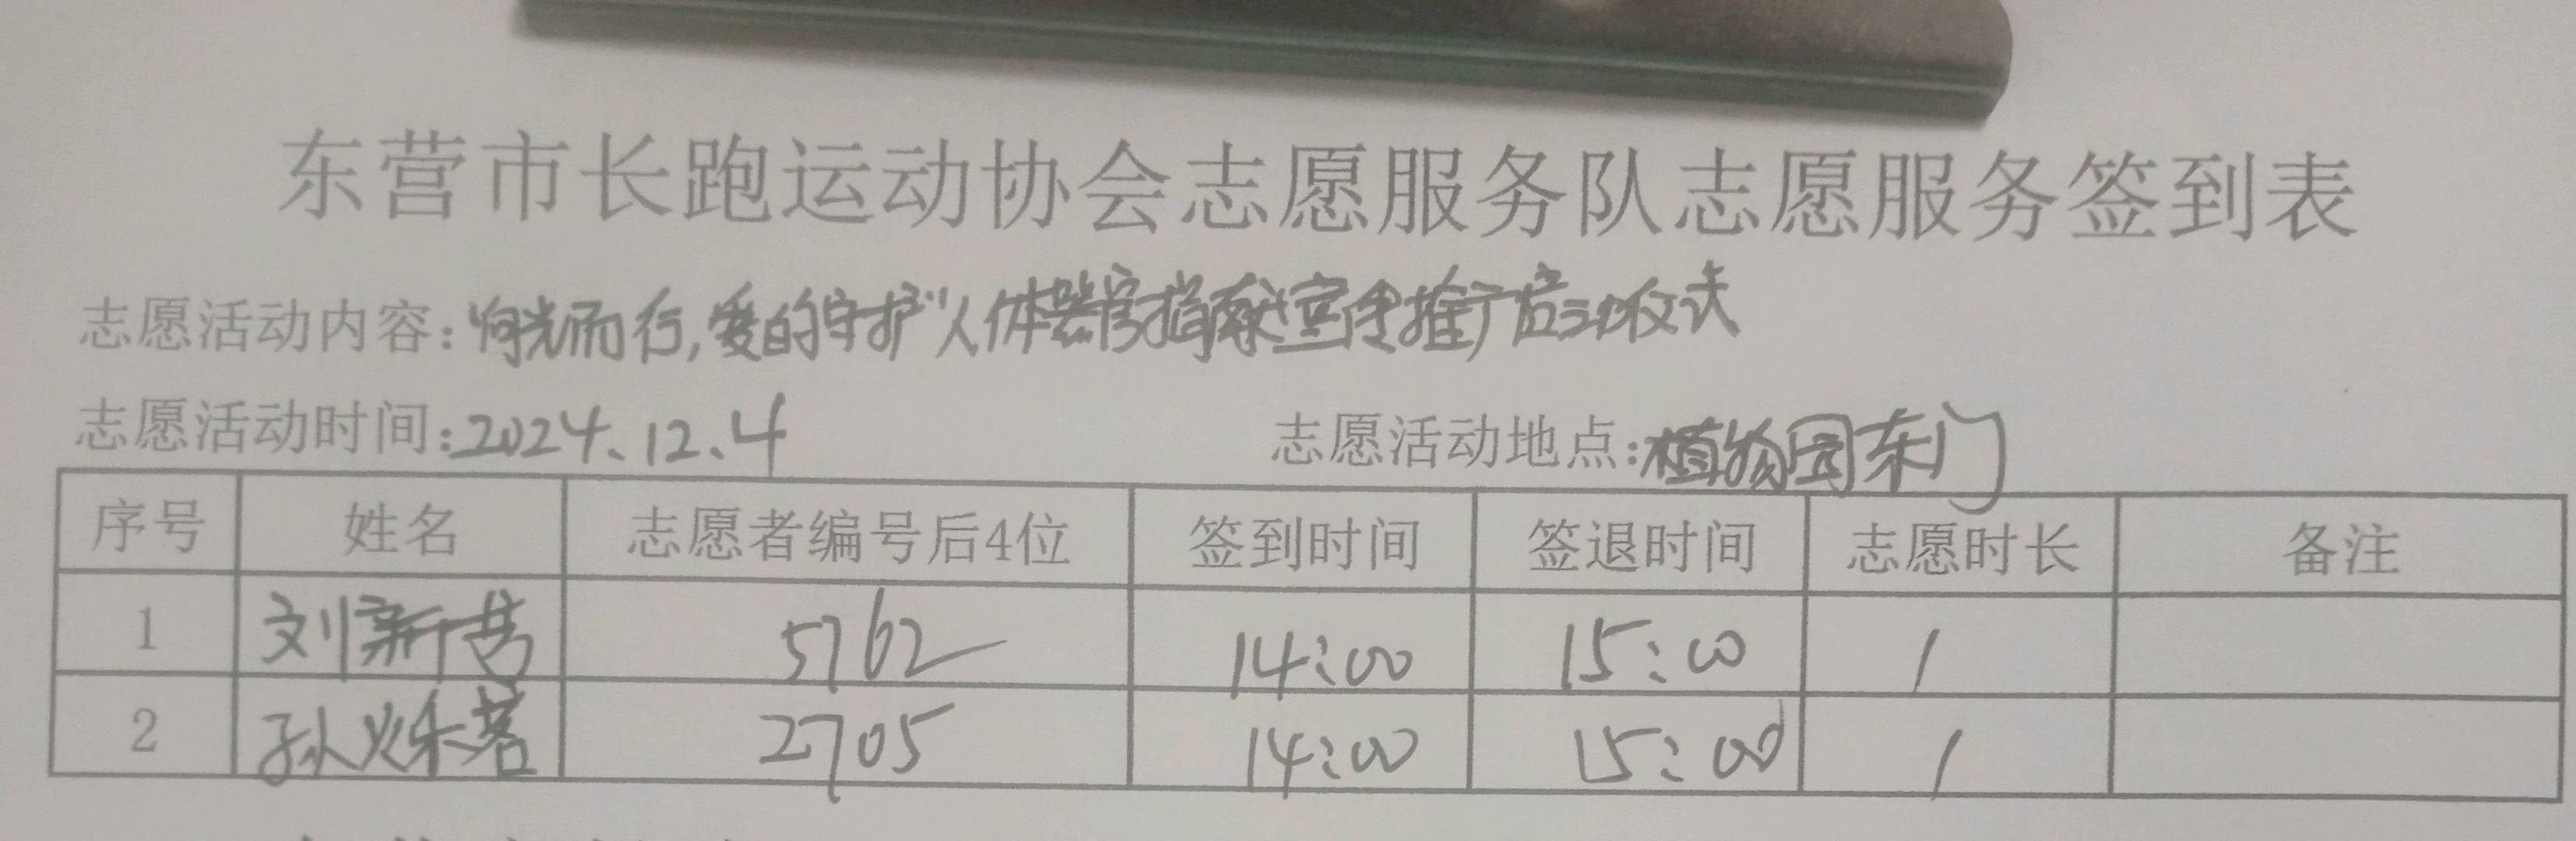 东营市长跑运动协会志愿服务队志愿服务签到表
志愿活动内容:"向光而行,爱的守护"人体器官捐献宣传推广启动仪式
志愿活动时间:2024.12.4 志愿活动地点:植物园东门
序号 姓名 志愿者编号后4位 签到时间 签退时间 志愿时长 备注
1 刘新营 5762 14:00 15:00 1
2 孙烁茗 2705 14:00 15:00 1